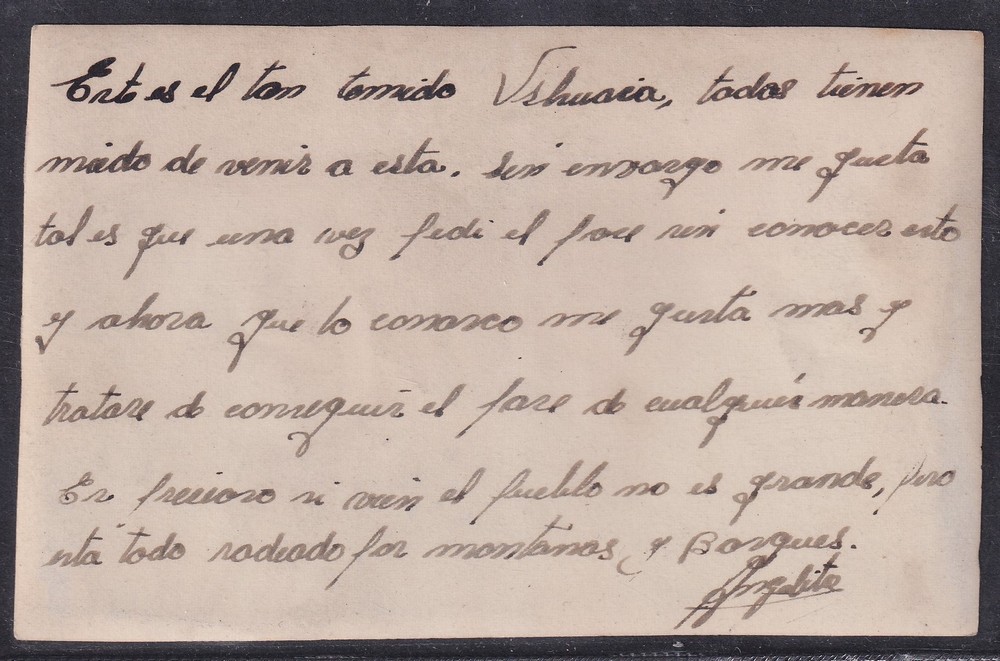 Este es el tan temido Ushuaia, todos tienen
miedo de venir a esta. sin envargo me gusta
tal es que una vez pedi el pase sin conocer esto
y ahora que lo conosco me gusta mas y
tratare de conseguir el pase de cualquier manera.
Es precioso si vien el pueblo no es grande, pero
esta todo rodeado por montañas y Borques.
Angelito